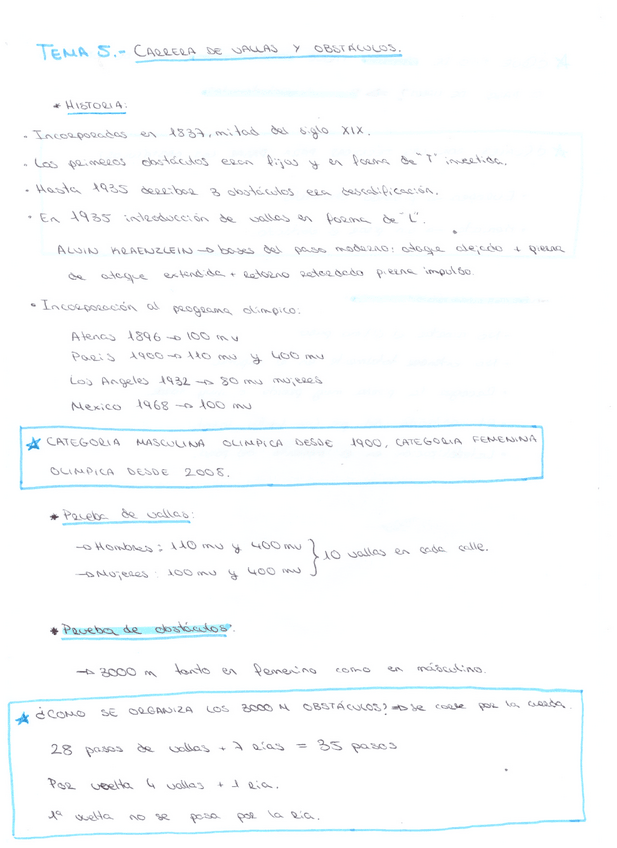 TEMA 5.- CARRERA DE VALLAS Y OBSTÁCULOS.
* HISTORIA:
- Incorporadas en 1837, mitad del siglo XIX.
- Los primeros obstáculos eran fijos y en forma de "T" invertida.
- Hasta 1935 derribar 3 obstáculos era descalificación.
• En 1935 introducción de vallas en forma de "L".
ALVIN KRAENZLEIN → bases del paso moderno: ataque alejado + pierna
de ataque extendida + retorno retardado pierna impulso.
• Incorporación al programa olímpico:
Atenas 1896 → 100 mv
Paris 1900 → 110 mv y 400 mv
Los Angeles 1932 → 80 mv mujeres
Mexico 1968 → 100 mv
★ CATEGORIA MASCULINA OLIMPICA DESDE 1900, CATEGORIA FEMENINA
OLIMPICA DESDE 2008.
* Prueba de vallas:
→ Hombres: 110 mv y 400 mv } 10 vallas en cada calle.
→ Mujeres: 100 mv y 400 mv
* Prueba de obstáculos:
→ 3000 m tanto en femenino como en másculino.
★ ¿COMO SE ORGANIZA LOS 3000 M OBSTÁCULOS? → se corre por la cuerda.
28 pasos de vallas + 7 rías = 35 pasos
Por vuelta 4 vallas + 1 ria.
1ª vuelta no se pasa por la ría.